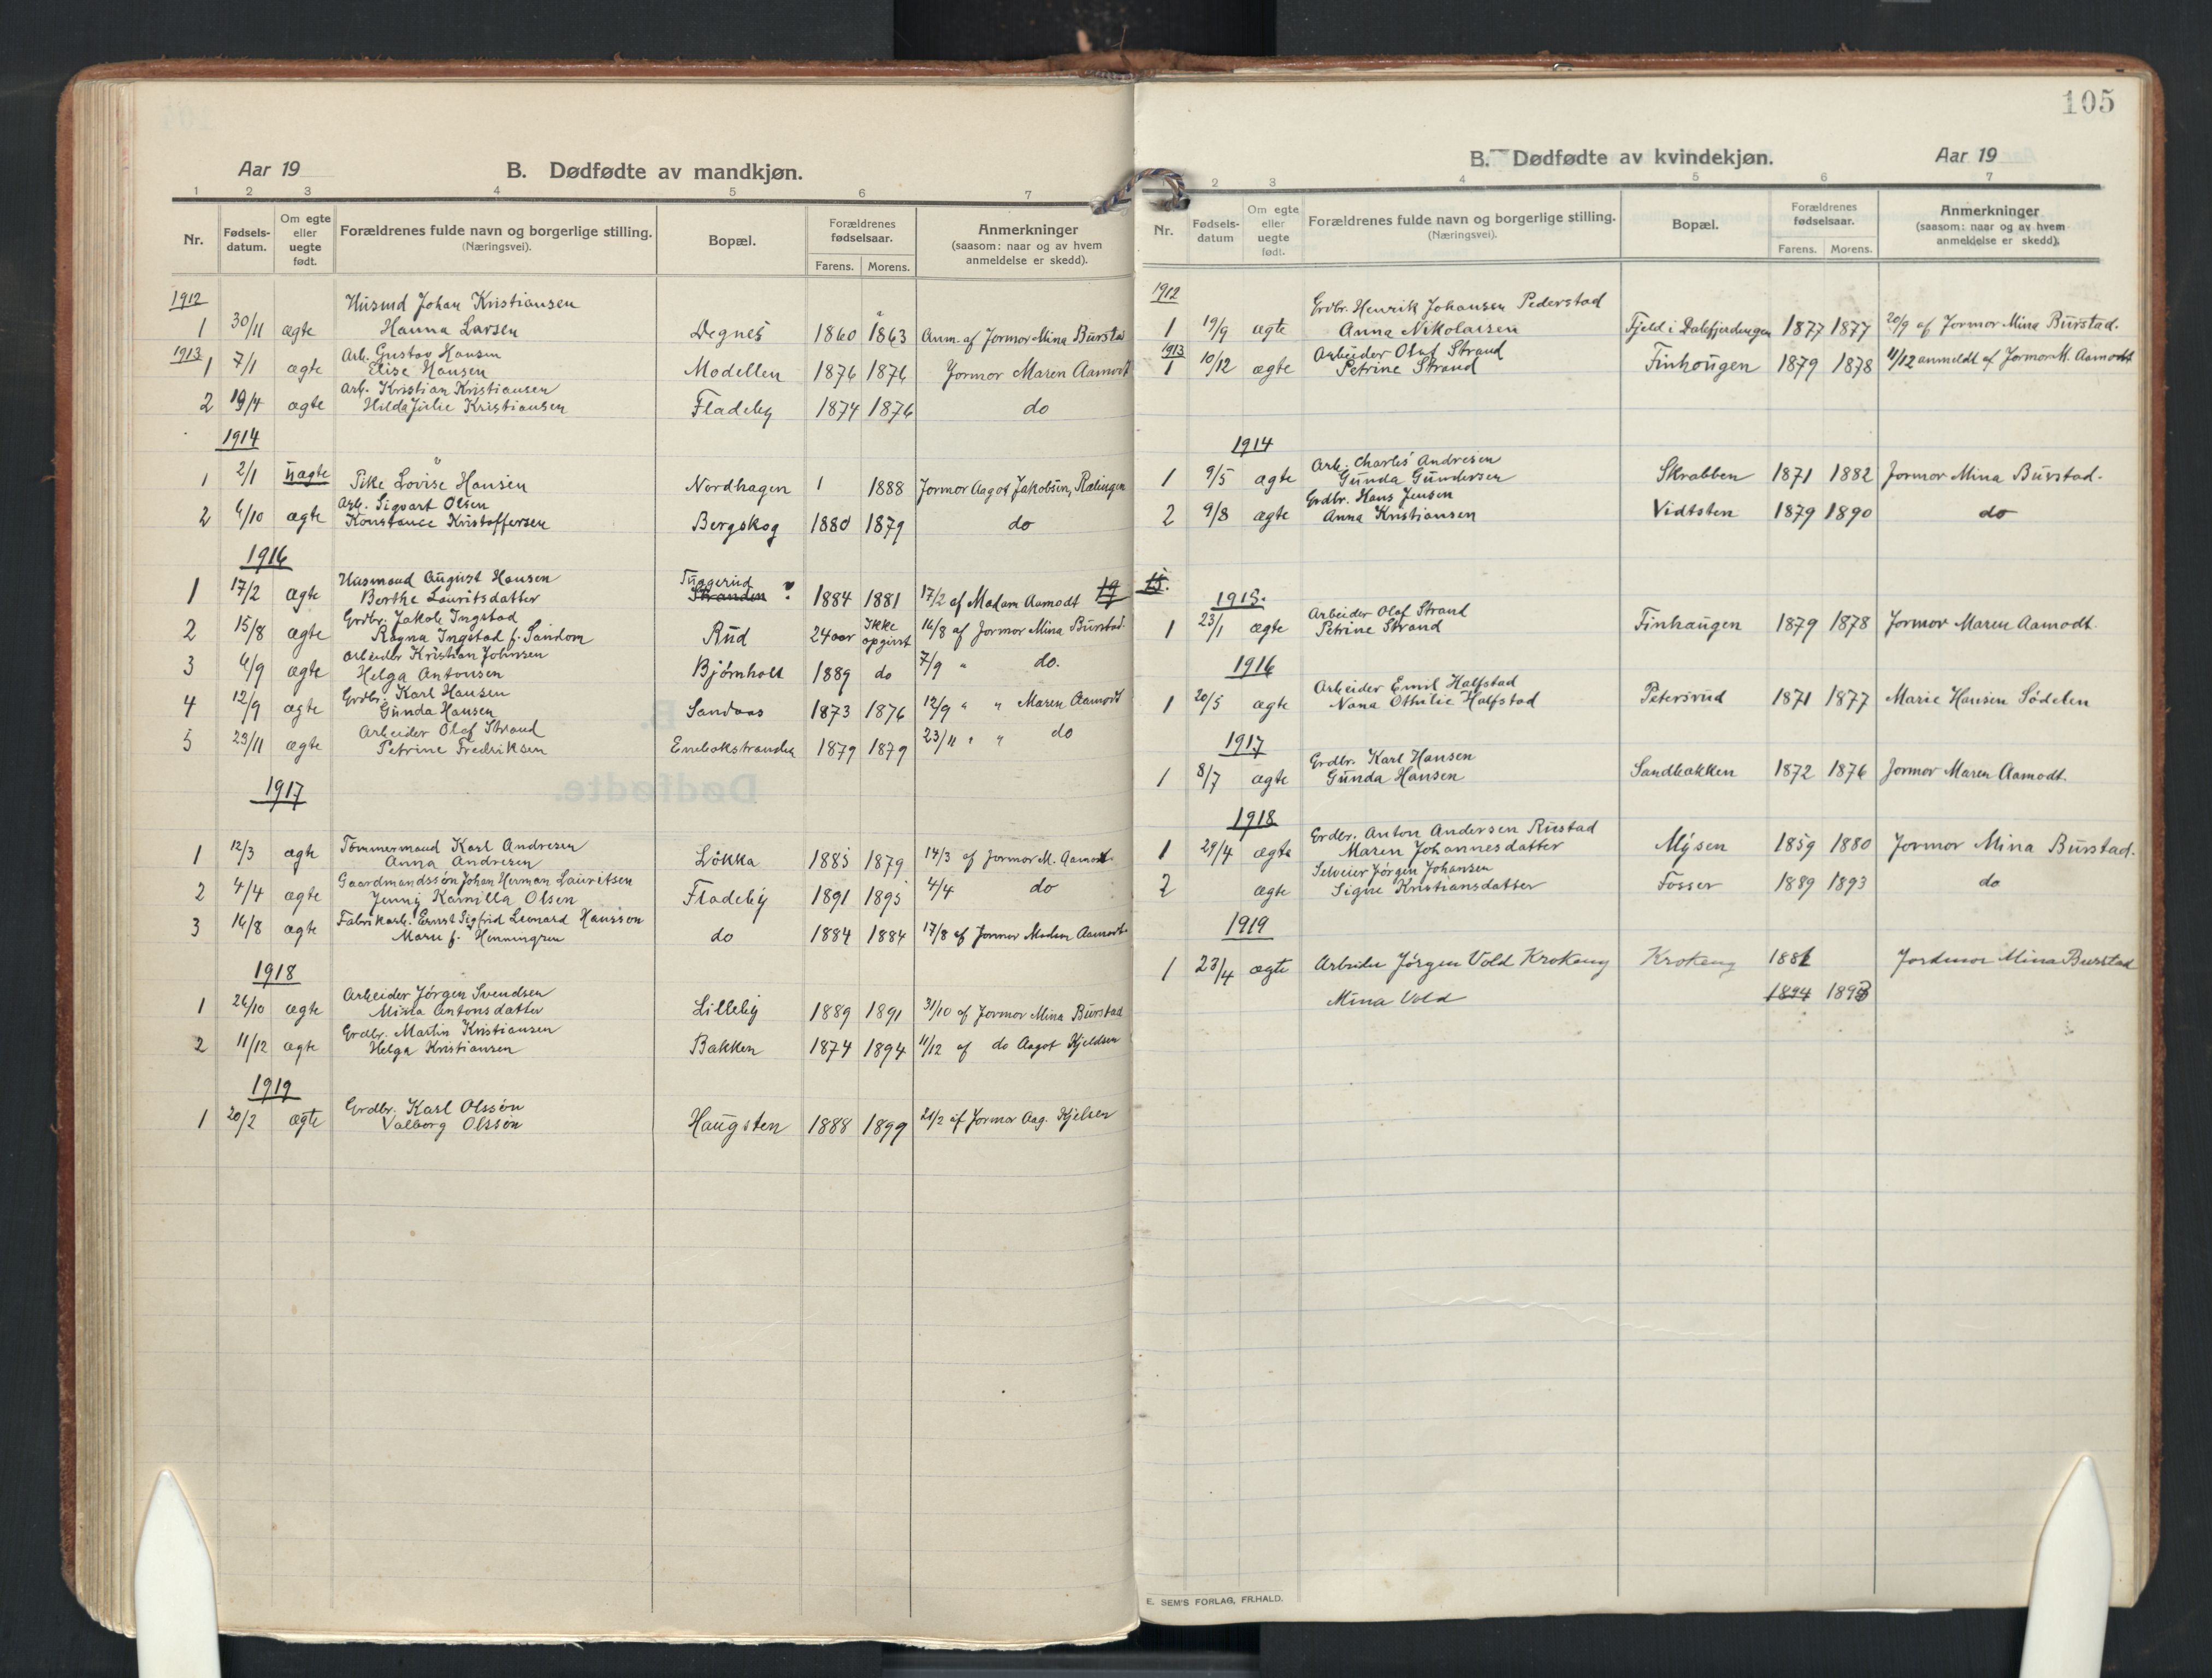 Aar 19
B. Dødfødte av mandkjøn.
1 2 3 4 5 6 7
Nr.
Fødsels-
datum.
Om egte
eller
uegte
født.
Forældrenes fulde navn og borgerlige stilling.
(Næringsvei).
Bopæl.
Forældrenes
fødselsaar.
Farens. Morens.
Anmerkninger
(saasom: naar og av hvem
anmeldelse er skedd).
1912
Husmd Johan Kristiansen
1 30/11 ægte Hanna Larsen Degnes 1860 1863 Anm. af Jormor Mina Burstad
1913
Arb. Gustav Hansen
1 7/1 ægte Elise Hansen Modellen 1876 1876 Jormor Maren Aamodt
Arb. Kristian Kristiansen
2 19/4 ægte Hilda Julie Kristiansen Fladeby 1874 1876 do
1914
1 2/1 uægte Pike Lovise Hansen Nordhagen 1 1888 Jormor Aagot Jakobsen, Rælingen
Arb. Sigvart Olsen
2 6/10 ægte Konstance Kristoffersen Bergskog 1880 1879 do
1916
Husmand August Hansen Tuggerud
1 17/2 ægte Berthe Lauritsdatter Stranden ? 1884 1881 17/2 af Madam Aamodt 19
Grdbr. Jakob Ingstad
2 15/8 ægte Ragna Ingstad f. Sandom Rud 24 aar Ikke opgivet 16/8 af Jormor Mina Burstad.
Arbeider Kristian Johnsen
3 6/9 ægte Helga Antonsen Bjørnholt 1889 do 7/9 " do.
Grdbr. Karl Hansen
4 12/9 ægte Gunda Hansen Sandaas 1873 1876 12/9 " " Maren Aamodt
Arbeider Olaf Strand
5 23/11 ægte Petrine Fredriksen Enebakstranden 1879 1879 23/11 " " do
1917
Tømmermand Karl Andresen
1 12/3 ægte Anna Andresen Løkka 1885 1879 14/3 af Jormor M. Aamodt.
Gaardmandssøn Johan Herman Lauritsen
2 4/4 ægte Jenny Kamilla Olsen Fladeby 1891 1895 4/4 do
Fabrikarb. Ernst Sigfrid Leonard Hansson
3 16/8 ægte Marie f. Henningsen do 1884 1884 17/8 af Jormor Madam Aamodt.
1918
Arbeider Jørgen Svendsen
1 26/10 ægte Mina Antonsdatter Lilleby 1889 1891 31/10 af Jormor Mina Burstad
Grdbr. Martin Kristiansen
2 11/12 ægte Helga Kristiansen Bakken 1874 1894 11/12 af do Aagot Kjeldsen
1919
Grdbr. Karl Olssøn
1 20/2 ægte Valborg Olssøn Haugsten 1888 1899 21/2 af Jormor Aag. Kjelsen
105
B. Dødfødte av kvindekjøn.
Aar 19
2 3 4 5 6 7
Nr.
Fødsels-
datum
Om egte
eller
uegte
født.
Forældrenes fulde navn og borgerlige stilling.
(Næringsvei).
Bopæl.
Forældrenes
fødselsaar.
Farens. Morens.
Anmerkninger
(saasom: naar og av hvem
anmeldelse er skedd).
1912
Grdbr. Henrik Johansen Pederstad
1 19/9 ægte Anna Nikolaisen Fjeld i Dalefjerdingen 1877 1877 20/9 af Jormor Mina Burstad.
1913
Arbeider Olaf Strand
1 10/12 ægte Petrine Strand Finhougen 1879 1878 11/12 anmeldt af Jormor M. Aamodt
1914
Arb. Charles Andresen
1 9/5 ægte Gunda Gundersen Skrabben 1871 1882 Jormor Mina Burstad.
Grdbr. Hans Jensen
2 9/8 ægte Anna Kristiansen Vidtsten 1879 1890 do
15.
1915.
Arbeider Olaf Strand
1 23/1 ægte Petrine Strand Finhaugen 1879 1878 Jormor Maren Aamodt.
1916
Arbeider Emil Halfstad
1 20/5 ægte Nana Othilie Halfstad Petersrud 1871 1877 Marie Hansen Sødelen
1917
Grdbr. Karl Hansen
1 8/7 ægte Gunda Hansen Sandbakken 1872 1876 Jormor Maren Aamodt.
1918
Grdbr. Anton Andersen Rustad
1 29/4 ægte Maren Johannesdatter Mysen 1859 1880 Jormor Mina Burstad.
Selveier Jørgen Johansen
2 ægte Signe Kristiansdatter Fosser 1889 1893 do
1919
1 23/4 ægte Arbeider Jørgen Vold Krokeng Krokeng 1881 Jordmor Mina Burstad
Mina Vold 1894 1893
E. SEM'S FORLAG, FR.HALD.